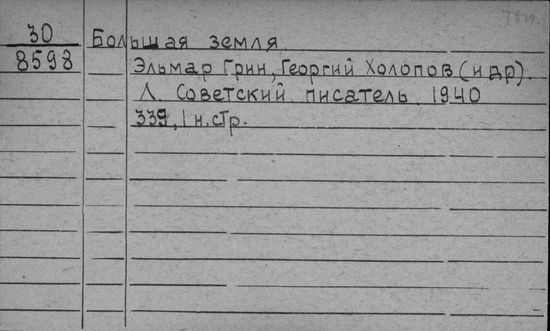 30
8598
Большая земля.
Эльмар Грин, Георгий Холопов (и др).
Л. Советский писатель. 1940
339, 1 н. стр.